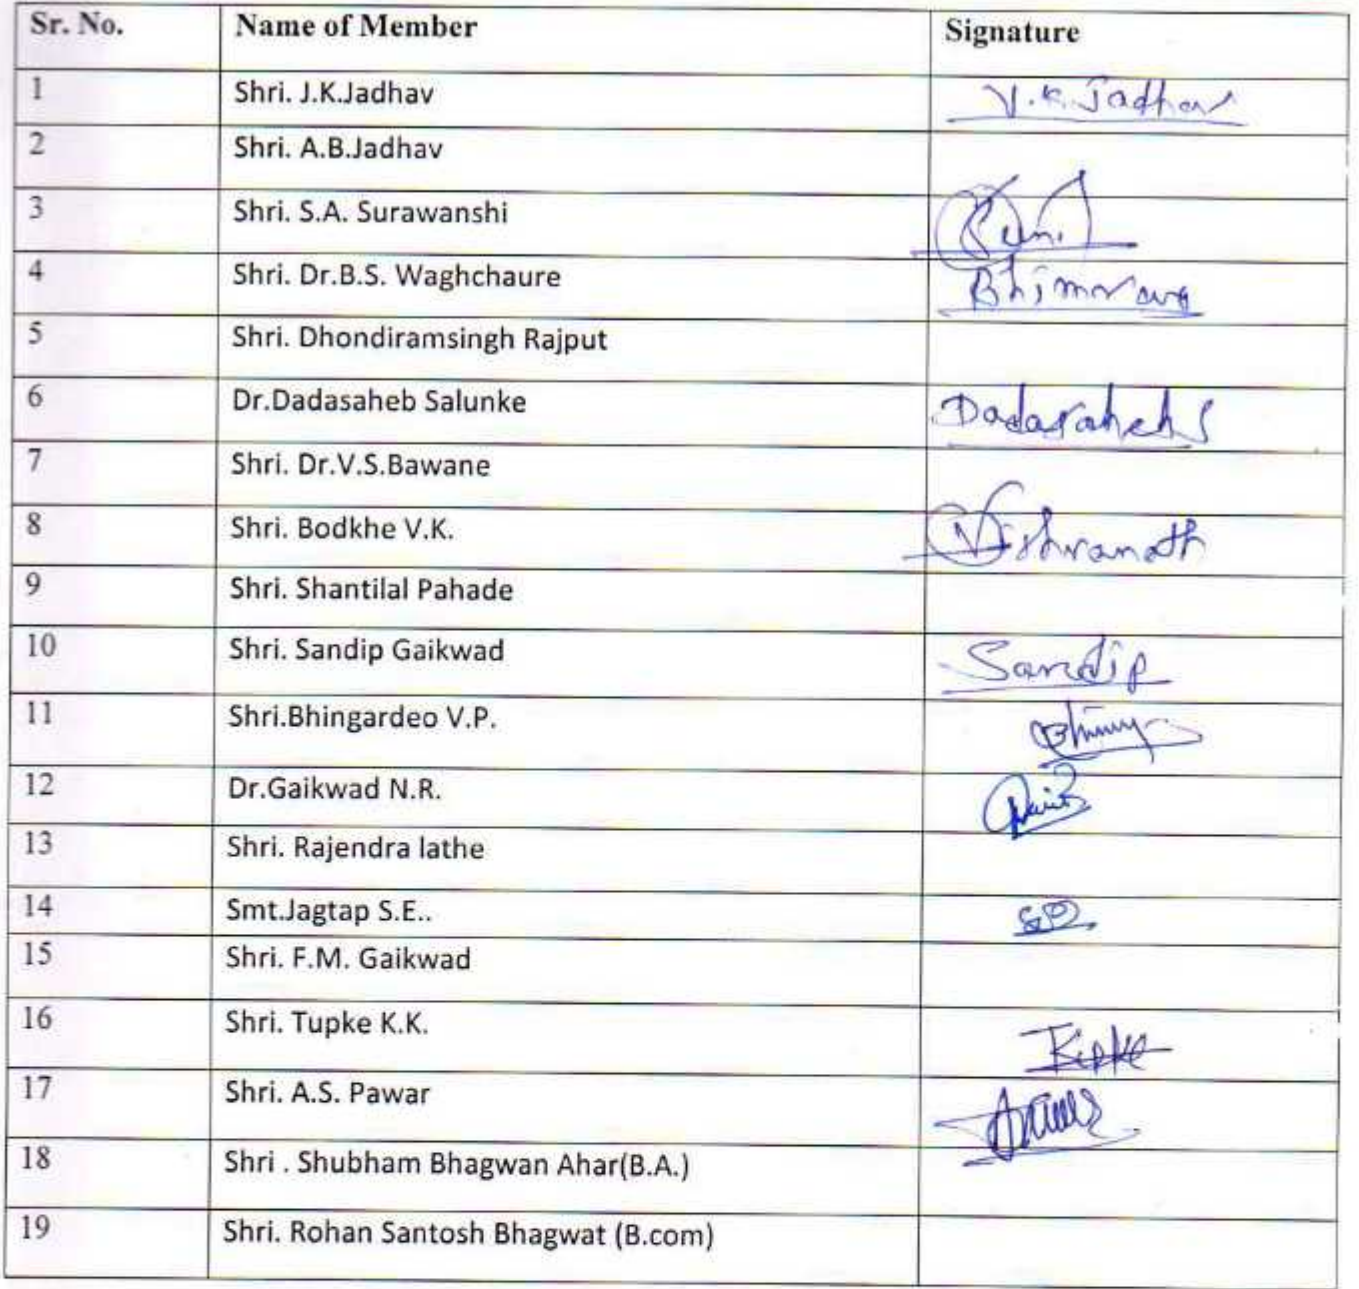 Sr. No. Name of Member Signature
1 Shri. J.K.Jadhav J.K.Jadhav
2 Shri. A.B.Jadhav
3 Shri. S.A. Surawanshi
4 Shri. Dr.B.S. Waghchaure Bhimrao
5 Shri. Dhondiramsingh Rajput
6 Dr.Dadasaheb Salunke Dadasaheb
7 Shri. Dr.V.S.Bawane
8 Shri. Bodkhe V.K. Vishvanath
9 Shri. Shantilal Pahade
10 Shri. Sandip Gaikwad Sandip
11 Shri.Bhingardeo V.P.
12 Dr.Gaikwad N.R.
13 Shri. Rajendra lathe
14 Smt.Jagtap S.E..
15 Shri. F.M. Gaikwad
16 Shri. Tupke K.K. Tupke
17 Shri. A.S. Pawar
18 Shri . Shubham Bhagwan Ahar(B.A.)
19 Shri. Rohan Santosh Bhagwat (B.com)